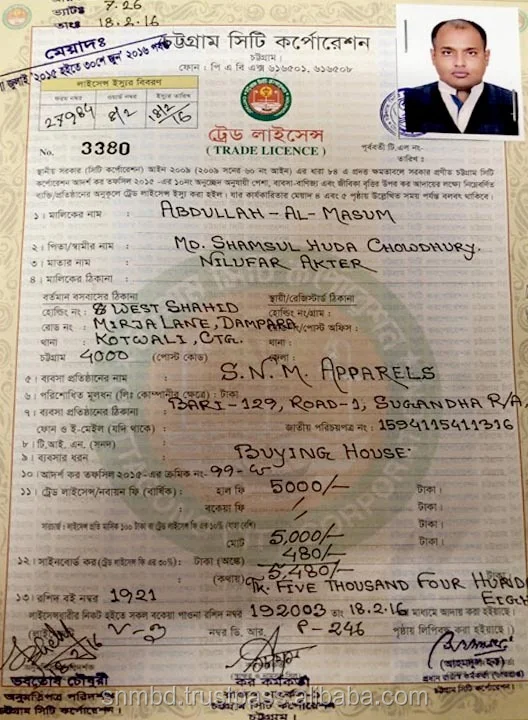 7.26
তাং 18.2.16
মেয়াদঃ
জুলাই '২০১৫ হইতে ৩০শে জুন' ২০১৬ পর্যন্ত
চট্টগ্রাম সিটি কর্পোরেশন
চট্টগ্রাম।
ফোন : পি এ বি এক্স ৬১৬৫০১, ৬১৬৫০৮
লাইসেন্স ইস্যুর বিবরণ
ফরম নম্বর ওয়ার্ড নম্বর ইস্যুর তারিখ
27984
ট্রেড লাইসেন্স
(TRADE LICENCE)
No. 3380
পূর্ববর্তী টি.এল নং-
তারিখ :
স্থানীয় সরকার (সিটি কর্পোরেশন) আইন ২০০৯ (২০০৯ সনের ৬০ নং আইন) এর ধারা ৮৪ এ প্রদত্ত ক্ষমতাবলে সরকার প্রণীত সিটি
কর্পোরেশন আদর্শ কর তফসিল ২০১৫ -এর ১০নং অনুচ্ছেদ অনুযায়ী পেশা, ব্যবসা-বাণিজ্য এবং জীবিকা বৃত্তির উপর কর আদায়ের লক্ষ্যে নিম্নবর্ণিত
ব্যক্তি/প্রতিষ্ঠানের অনুকূলে ট্রেড লাইসেন্স ইস্যু করা হইল। যার কার্যকারিতার মেয়াদ ৪ এবং ৫ পৃষ্ঠায় উল্লেখিত সময় পর্যন্ত বলবৎ থাকিবে।
১। মালিকের নাম : ABDULLAH-AL-MASUM
২। পিতা/স্বামীর নাম : MD. SHAMSUL HUDA CHOWDHURY.
৩। মাতার নাম : NILUFAR AKTER
৪। মালিকের ঠিকানা :
বর্তমান বসবাসের ঠিকানা স্থায়ী/রেজিস্টার্ড ঠিকানা
হোল্ডিং নং : 8 WEST SHAHID হোল্ডিং নং/গ্রাম :
রোড নং : MIRJA LANE, DAMPARA /পোস্ট অফিস :
থানা : KOTWALI, CTG. থানা :
চট্টগ্রাম 4000 (পোস্ট কোড) জেলা :
৫। ব্যবসা প্রতিষ্ঠানের নাম : S.N.M. APPARELS
৬। পরিশোধিত মূলধন (লিঃ কোম্পানীর ক্ষেত্রে) : টাকা
৭। ব্যবসা প্রতিষ্ঠানের ঠিকানা : BARI-129, ROAD-1, SUGANDHA R/A.
ফোন ও ই-মেইল (যদি থাকে) : জাতীয় পরিচয়পত্র নং : 1594115411316
৮। টি.আই. এন. (সনদ) :
৯। ব্যবসার ধরন : BUYING HOUSE.
১০। আদর্শ কর তফসিল ২০১৫-এর ক্রমিক নং- 99-
১১। ট্রেড লাইসেন্স/নবায়ন ফি (বার্ষিক) : হাল ফি 5000/- টাকা।
বকেয়া ফি টাকা।
টাকা।
মোট 5,000/- টাকা।
১২। সাইনবোর্ড কর (ট্রেড লাইসেন্স ফি এর ৩০%) : টাকা (অংকে) 480/-
5,480/-
(কথায়) TK. FIVE THOUSAND FOUR HUND
EIGH
১৩। রশিদ বই নম্বর 1921
লাইসেন্সধারীর নিকট হইতে সকল বকেয়া পাওনা রশিদ নম্বর 192003 তাং 18.2.16 মাধ্যমে আদায় করা হইয়াছে।
নম্বর ডি. আর. P-246 পৃষ্ঠায় লিপিবদ্ধ করা হইয়াছে।
ভবতোষ চৌধুরী
অনুমতিপত্র পরিদর্শক
চট্টগ্রাম সিটি কর্পোরেশন
কর কর্মকর্তা
চট্টগ্রাম।
চট্টগ্রাম সিটি কর্পোরেশন
snmbd.trustpass.alibaba.com